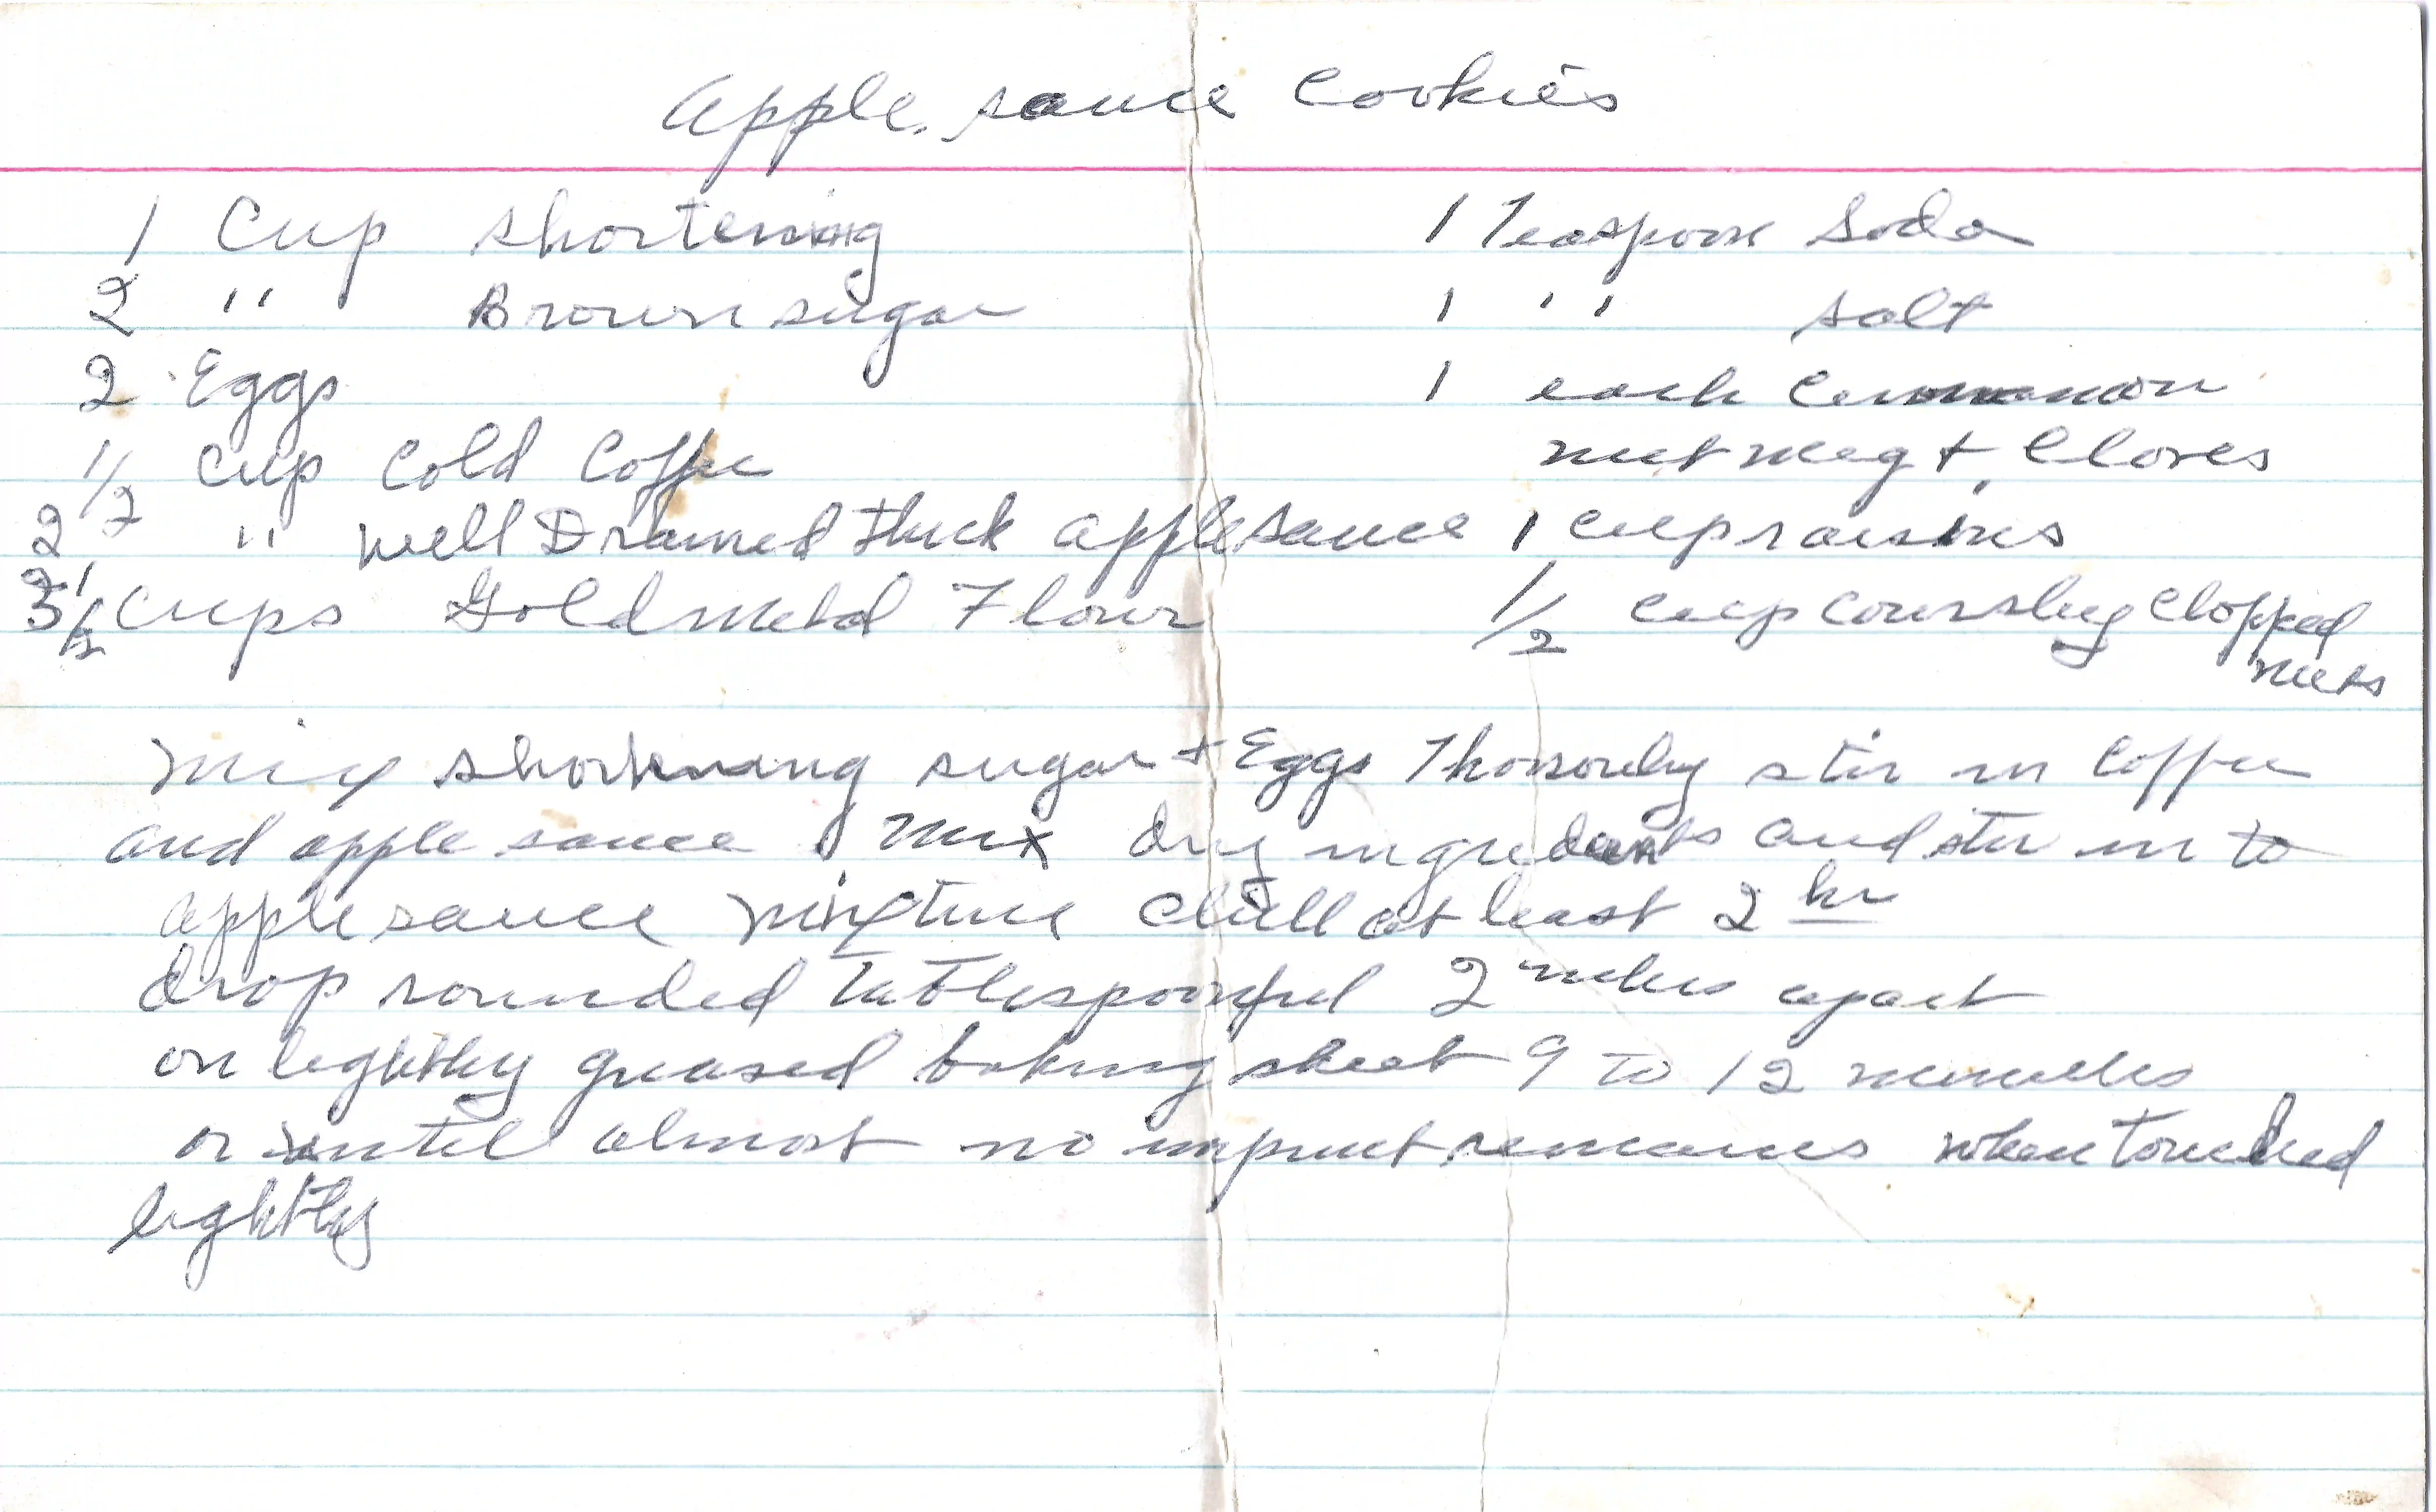 Apple sauce Cookies
1 Cup shortening
2 " Brown sugar
2 Eggs
1/2 Cup Cold Coffee
2 " well Drained thick applesauce
3 1/2 Cups Gold Metal Flour
1 Teaspoon Soda
1 " salt
1 each Cinnamon
nutmeg + Cloves
1 cup raisins
1/2 cup coursley Chopped
nuts
Mix shortening sugar + Eggs Thorouly stir in Coffee
and apple sauce. Mix dry ingredeants and stir in to
apple sauce Mixture Chill at least 2 hr
drop rounded Tablespoonful 2 inches apart
on lightly greased baking sheet 9 to 12 minutes
or until almost no imprint remains when touched
lightly